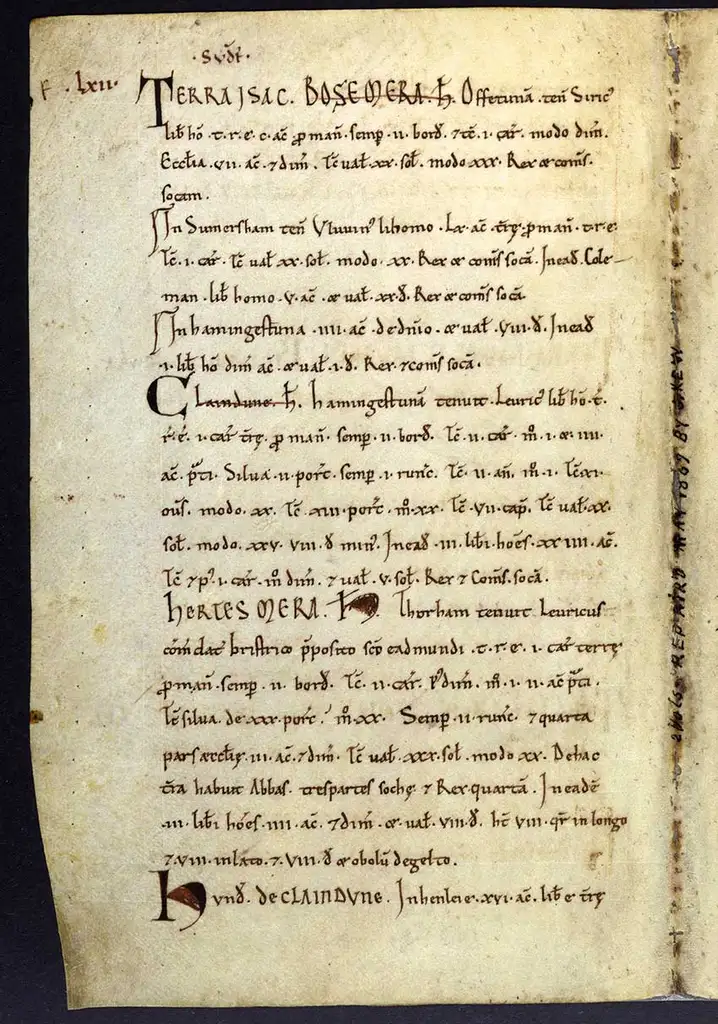 · SVDF ·
· lxii · TERRA ISAC. BOSEMERA. H̃. Offetunã ten̄ Siric⁹
lib̄ hō · t · r · e · c · ac̄ ꝓ man̄ · semꝑ · ii · bord̄ · ⁊ tc̄ · i · car̄ · modo dim̄ ·
Eccl̄ia · vii · ac̄ · ⁊ dim̄ · Tc̄ ual̄ · xx · sol̄ · modo · xxx · Rex & com̄s ·
socam ·
In Sumersham ten̄ Vluuin⁹ lib homo · Lx · ac̄ · t̄rę · ꝓ man̄ · t · r · e ·
Tc̄ · i · car̄ · Tc̄ ual̄ xx · sol̄ · modo · xx · Rex & com̄s socã · In ead̄ · Cole-
man · lib̄ homo · v · ac̄ · & ual̄ · xx · d̄ · Rex & com̄s socã
In hamingestuna · iiii · ac̄ · de dn̄io · & ual̄ · viii · d̄ · In ead̄
· i · lib̄ hō dim̄ ac̄ · & ual̄ · i · d̄ · Rex · ⁊ com̄s socã ·
Claindune · H̃ · hamingestunã tenuit · Leuric⁹ lib̄ hō · t ·
r · e · i · car̄ t̄rę · ꝓ man̄ · semꝑ · ii · bord̄ · Tc̄ · ii · car̄ · m̊ · i · & · iiii ·
ac̄ · p̄ti · Silua · ii · porc̄ · semꝑ · i · runc̄ · Tc̄ · ii · an̄ · m̊ · i · Tc̄ xi ·
ou̅s · modo · xx · Tc̄ · xiii · porc̄ · m̊ · xx · Tc̄ · vii · cap̄ · Tc̄ ual̄ · xx ·
sol̄ · modo · xxv · viii · d̄ min⁹ · In ead̄ · iii · lib̄i · hōes · xxiiii · ac̄ ·
Tc̄ ⁊ p⁹ · i · car̄ · m̊ dim̄ · ⁊ ual̄ · v · sol̄ · Rex ⁊ Com̄s · socã ·
HERTESMERA. H̃ · Thorham tenuit Leuricus
cōmdat⁹ bristrico p̄posito sc̄o eadmundi · t · r · e · i · car̄ terrę
ꝓ man̄ · semꝑ · ii · bord̄ · Tc̄ · ii · car̄ · p⁹ dim̄ · m̊ · i · ii · ac̄ p̄ti ·
Tc̄ silua · de · xxx · porc̄ · m̊ · xx · Semꝑ · ii · runc̄ · ⁊ quarta
pars æccl̄ię · iii · ac̄ · ⁊ dim̄ · Tc̄ ual̄ · xxx · sol̄ · modo xx · De hac
t̄ra habuit Abbas · tres partes sochę · ⁊ Rex quartã · In eadē
· iii · lib̄i hōes · iiii · ac̄ · ⁊ dim̄ · & ual̄ · viii · d̄ · ht̄ viii · qr̄ in longo
⁊ · viii · in lato · ⁊ · viii · d̄ & obolū de gelto ·
Hund̄ · de CLAINDUNE · In henleie · xvi · ac̄ · lib̄e t̄rę
REPAIRD MAY 1869 BY SKEW